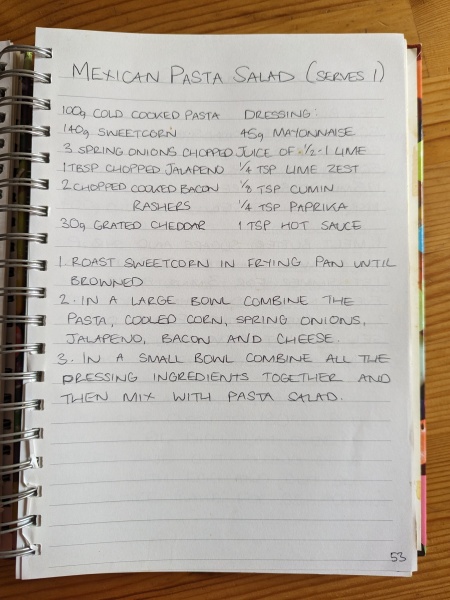 MEXICAN PASTA SALAD (SERVES 1)
100g COLD COOKED PASTA
140g SWEETCORN
3 SPRING ONIONS CHOPPED
1 TBSP CHOPPED JALAPENO
2 CHOPPED COOKED BACON
RASHERS
30g GRATED CHEDDAR
DRESSING:
45g MAYONNAISE
JUICE OF ½-1 LIME
¼ TSP LIME ZEST
⅛ TSP CUMIN
¼ TSP PAPRIKA
1 TSP HOT SAUCE
1. ROAST SWEETCORN IN FRYING PAN UNTIL
BROWNED
2. IN A LARGE BOWL COMBINE THE
PASTA, COOLED CORN, SPRING ONIONS,
JALAPENO, BACON AND CHEESE.
3. IN A SMALL BOWL COMBINE ALL THE
DRESSING INGREDIENTS TOGETHER AND
THEN MIX WITH PASTA SALAD.
53